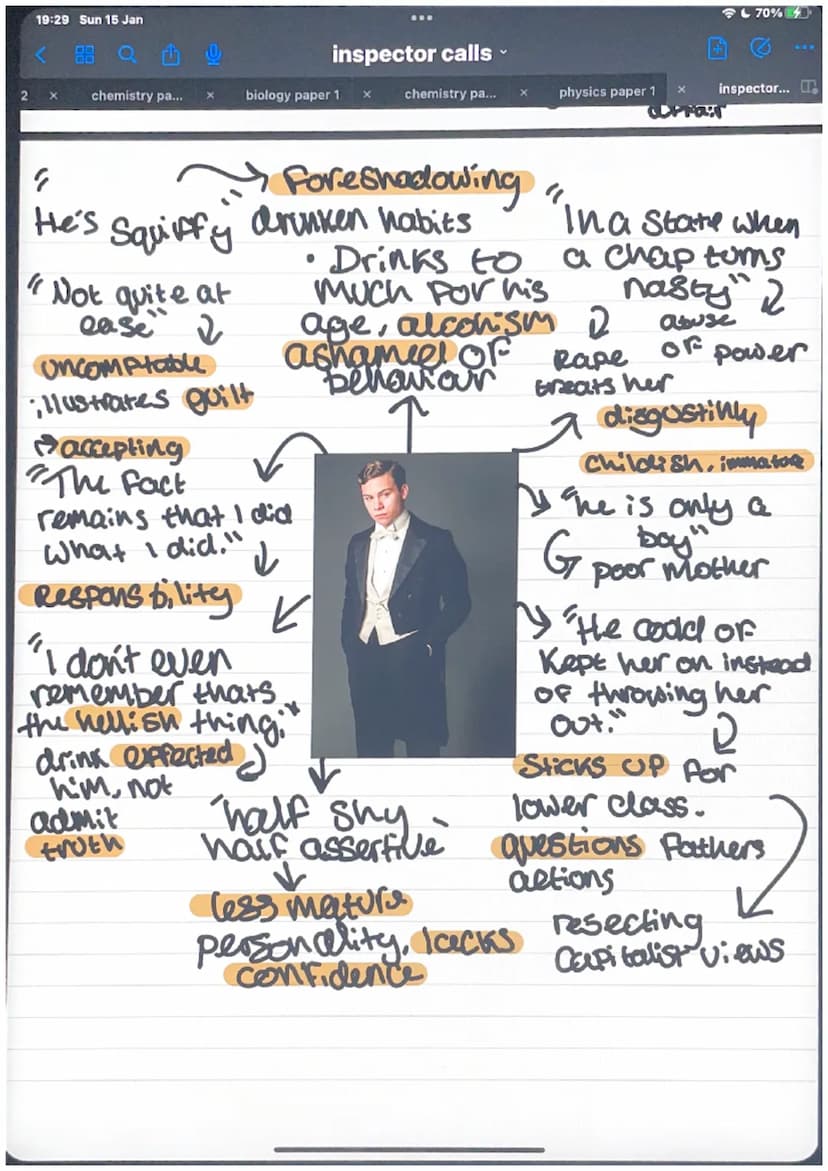 19:29 Sun 15 Jan
70%
inspector calls
2
chemistry pa...
biology paper 1
chemistry pa...
physics paper 1
inspector...
affair
Foreshadowing
"He's Squiffy"
drunken habits
• Drinks to
much for his
age, alcohism
ashamed of
behaviour
"Not quite at
ease"
uncomptable
illustrates guilt
accepting
"The fact
remains that I did
what I did."
Responsbility
"I don't even
remember thats
the hellish thing."
drink effected
him, not
admit
truth
"half shy
half assertive"
less mature
personality, lacks
confidence
"In a state when
a chap turns
nasty"
abuse
of power
Rape
treats her
disgustinly
Childish, immature
"he is only a
boy"
poor mother
"He could of
kept her on instead
of throwing her
out."
Sticks up for
lower class.
questions fathers
actions
resecting
capitalist views